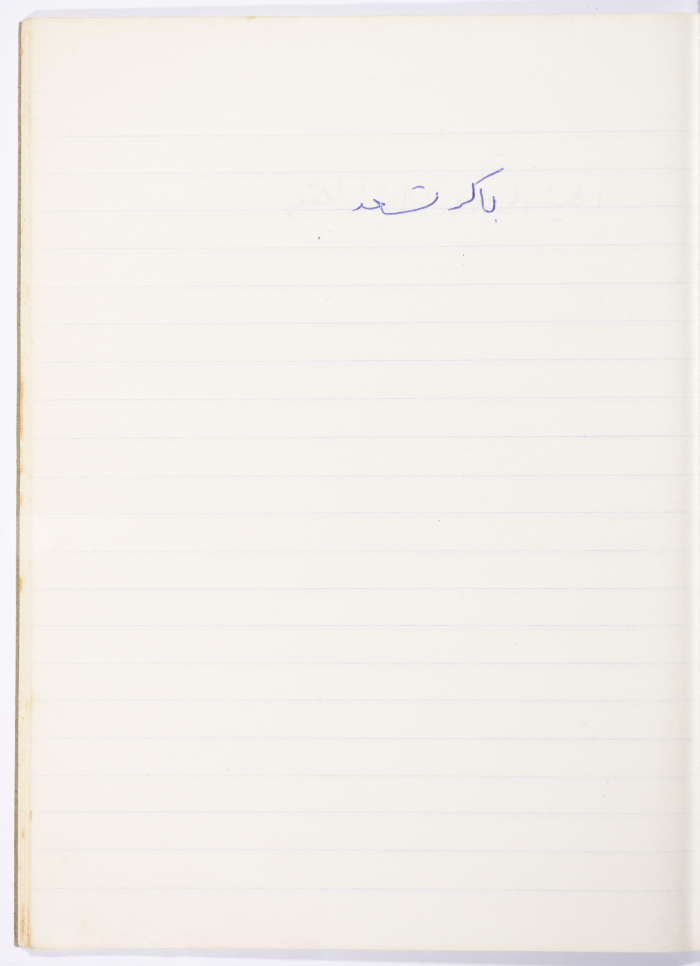 باكر تسعد